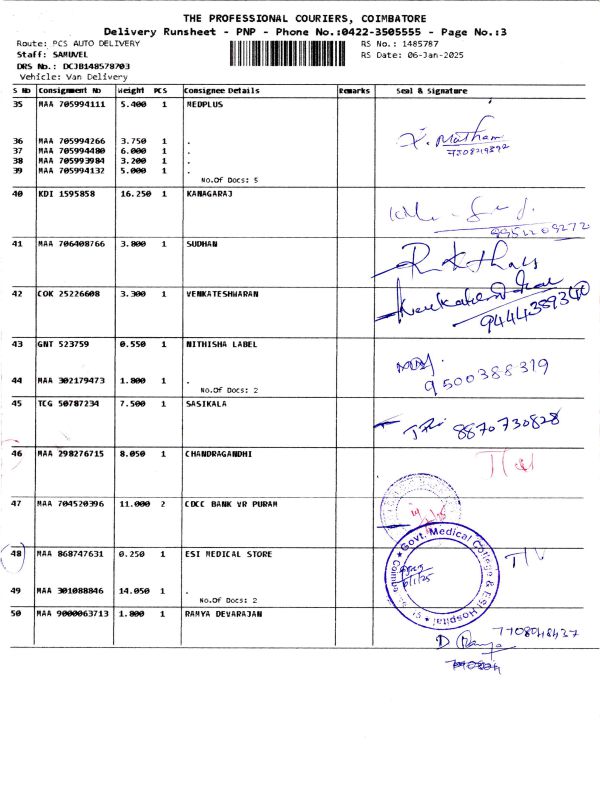 THE PROFESSIONAL COURIERS, COIMBATORE
Delivery Runsheet - PNP - Phone No.:0422-3505555 - Page No.:3
Route: PCS AUTO DELIVERY RS No.: 1485787
Staff: SAMUVEL RS Date: 06-Jan-2025
DRS No.: DCJB148578703
Vehicle: Van Delivery
S No Consignment No Weight PCS Consignee Details Remarks Seal & Signature
35 MAA 705994111 5.400 1 MEDPLUS
36 MAA 705994266 3.750 1 .
37 MAA 705994480 6.000 1 .
38 MAA 705993984 3.200 1 .
39 MAA 705994132 5.000 1 .
No.Of Docs: 5
40 KDI 1595858 16.250 1 KANAGARAJ
9952209272
41 MAA 706408766 3.800 1 SUDHAN
42 COK 25226608 3.300 1 VENKATESHWARAN
43 GNT 523759 0.550 1 NITHISHA LABEL
9500388319
44 MAA 302179473 1.800 1 .
No.Of Docs: 2
45 TCG 50787234 7.500 1 SASIKALA
8870730828
46 MAA 298276715 8.050 1 CHANDRAGANDHI
47 MAA 704520396 11.000 2 CDCC BANK VR PURAM
48 MAA 868747631 0.250 1 ESI MEDICAL STORE
Govt. Medical College & ESI Hospital
49 MAA 301088846 14.050 1 .
No.Of Docs: 2
50 MAA 9000063713 1.800 1 RAMYA DEVARAJAN
7708048437